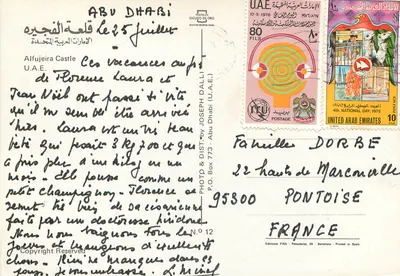 ABU DHABI
Le 25 juillet
قلعة الفجيره
الامارات العربية المتحدة
Alfujeira Castle
U.A.E
Ces vacances auprès
de Florence Laura et
Jean Noël ont passé si vite
qu'il me semble être arrivée
hier. Laura est un vrai
bébé qui pesait 3 kg 200 et qui
a pris plus d'un kilog en un
mois - elle pousse comme un
petit champignon - Florence se
remet très bien de sa césarienne
faite par une doctoresse hindoue
Nous nous baignons tous les
jours et mangeons d'excellentes
choses. Rien ne manque dans ce
pays. Je vous embrasse.
N.º 12
Copyright Reserved
PHOTO & DIST. by JOSEPH DALLI
P.O. Box 773 - Abu Dhabi (U.A.E)
U.A.E.
17-5-1976
80
FILS
ITU
POSTAGE
4th. NATIONAL DAY, 1975
UNITED ARAB EMIRATES
10
Famille DORBE
22 hauts de Marcouville
95300 PONTOISE
FRANCE
Printed in Spain